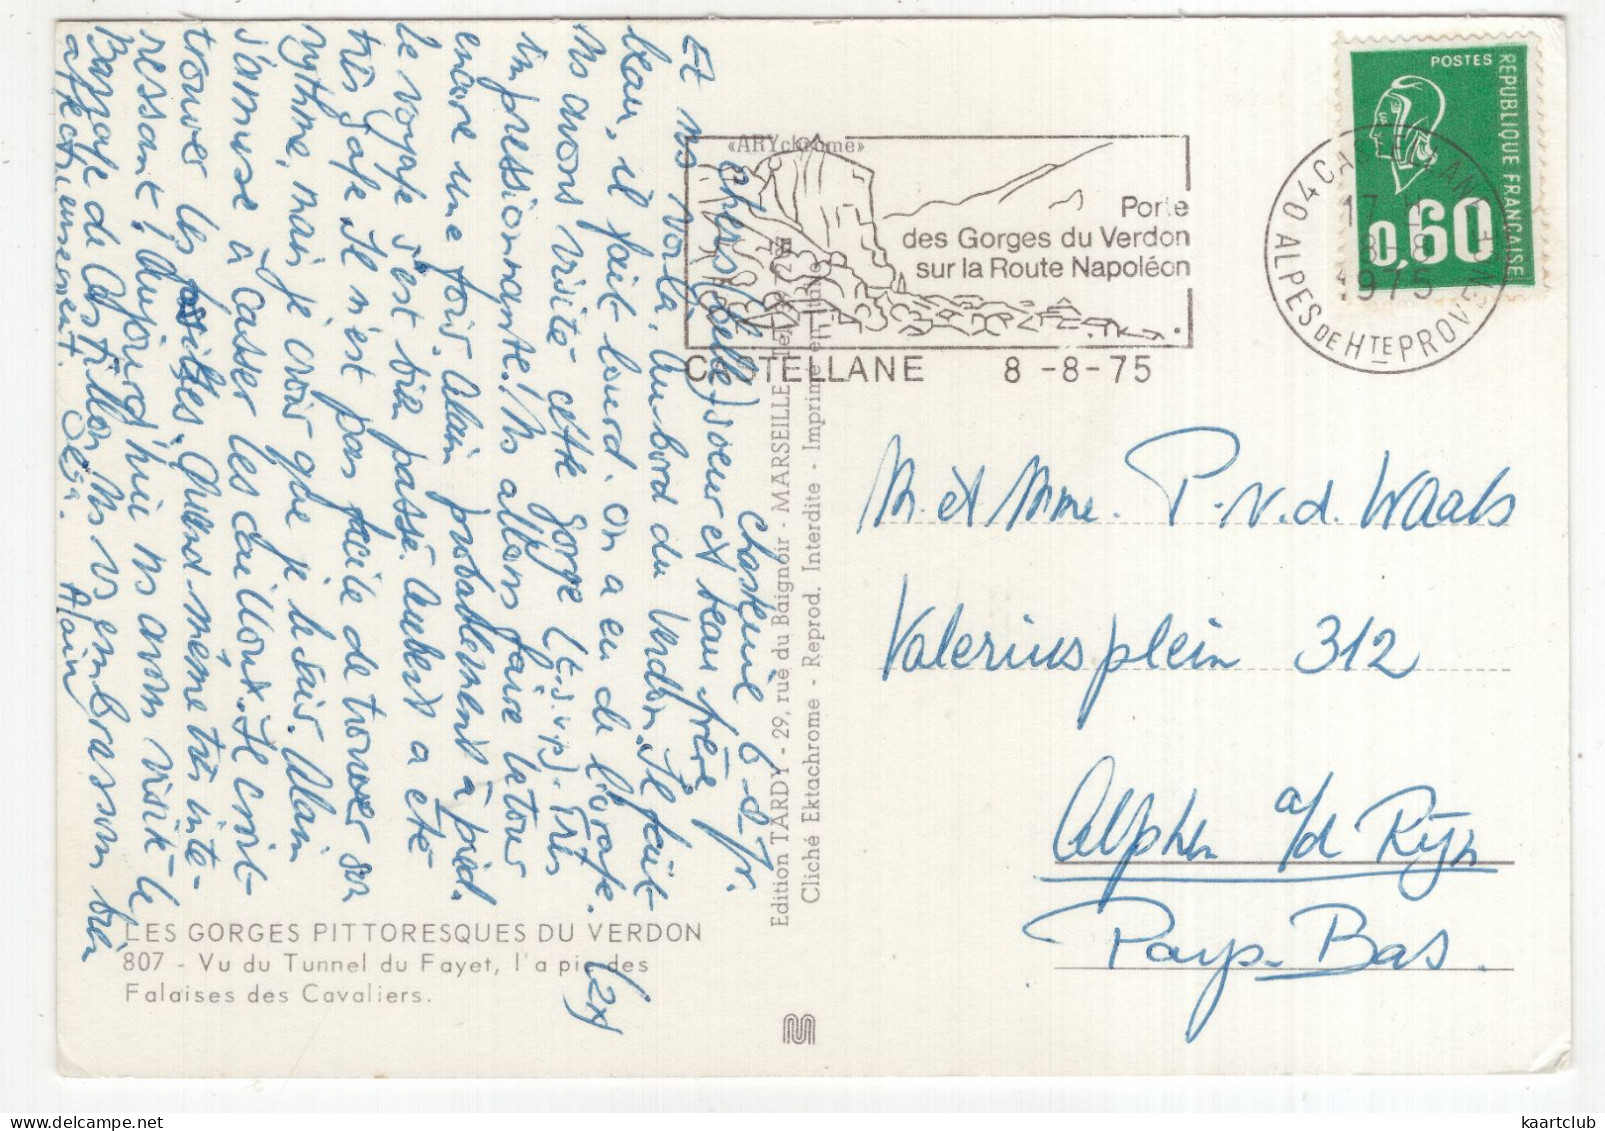 Chasteuil 6-8-75.
Chers (belle) soeur et beau frère
Et ns voilà. Au bord du Verdon. Il fait
beau, il fait lourd. On a eu de l'orage. (2x)
Ns avons visité cette gorge (t.s.v.p). Très
impressionnante! Ns allons faire le tour
encore une fois. Alain probablement à pied.
Le voyage s'est bien passé. a été
très sage. Il n'est pas facile de trouver son
rythme, mais je crois que je le sais. Alain
s'amuse à casser les cailloux. Il croit
trouver les fossiles. Quand même très inte-
ressant! Aujourd'hui ns avons visité le
Barrage de Castillon. Ns vs embrassons bien
affectueusement.
Alain
«ARYchrome»
Edition TARDY - 29, rue du Baignoir - MARSEILLE
Cliché Ektachrome - Reprod. Interdite - Imprimé en
LES GORGES PITTORESQUES DU VERDON
807 - Vu du Tunnel du Fayet, l'a pic des
Falaises des Cavaliers.
Porte
des Gorges du Verdon
sur la Route Napoléon
CASTELLANE 8-8-75
POSTES
REPUBLIQUE FRANÇAISE
0,60
04 CASTELLANE
17 H
8-8
1975
ALPES DE HTE PROVENCE
M. et Mme. P. v. d. Waals
Valeriusplein 312
Alphen a/d Rijn
Pays-Bas.
kaartclub